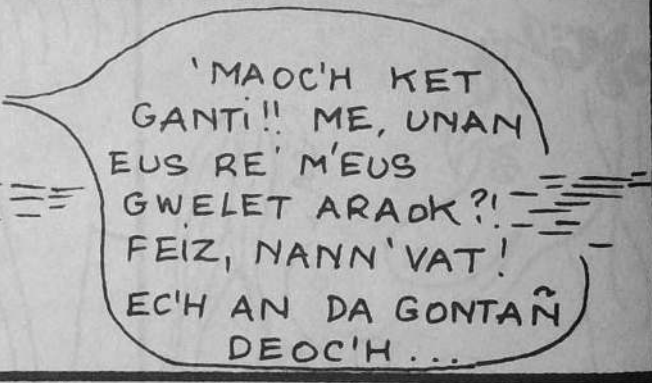 'MAOC'H KET
GANTI!! ME, UNAN
EUS RE' M'EUS
GWELET ARAOK?!
FEIZ, NANN 'VAT!
EC'H AN DA GONTAÑ
DEOC'H...